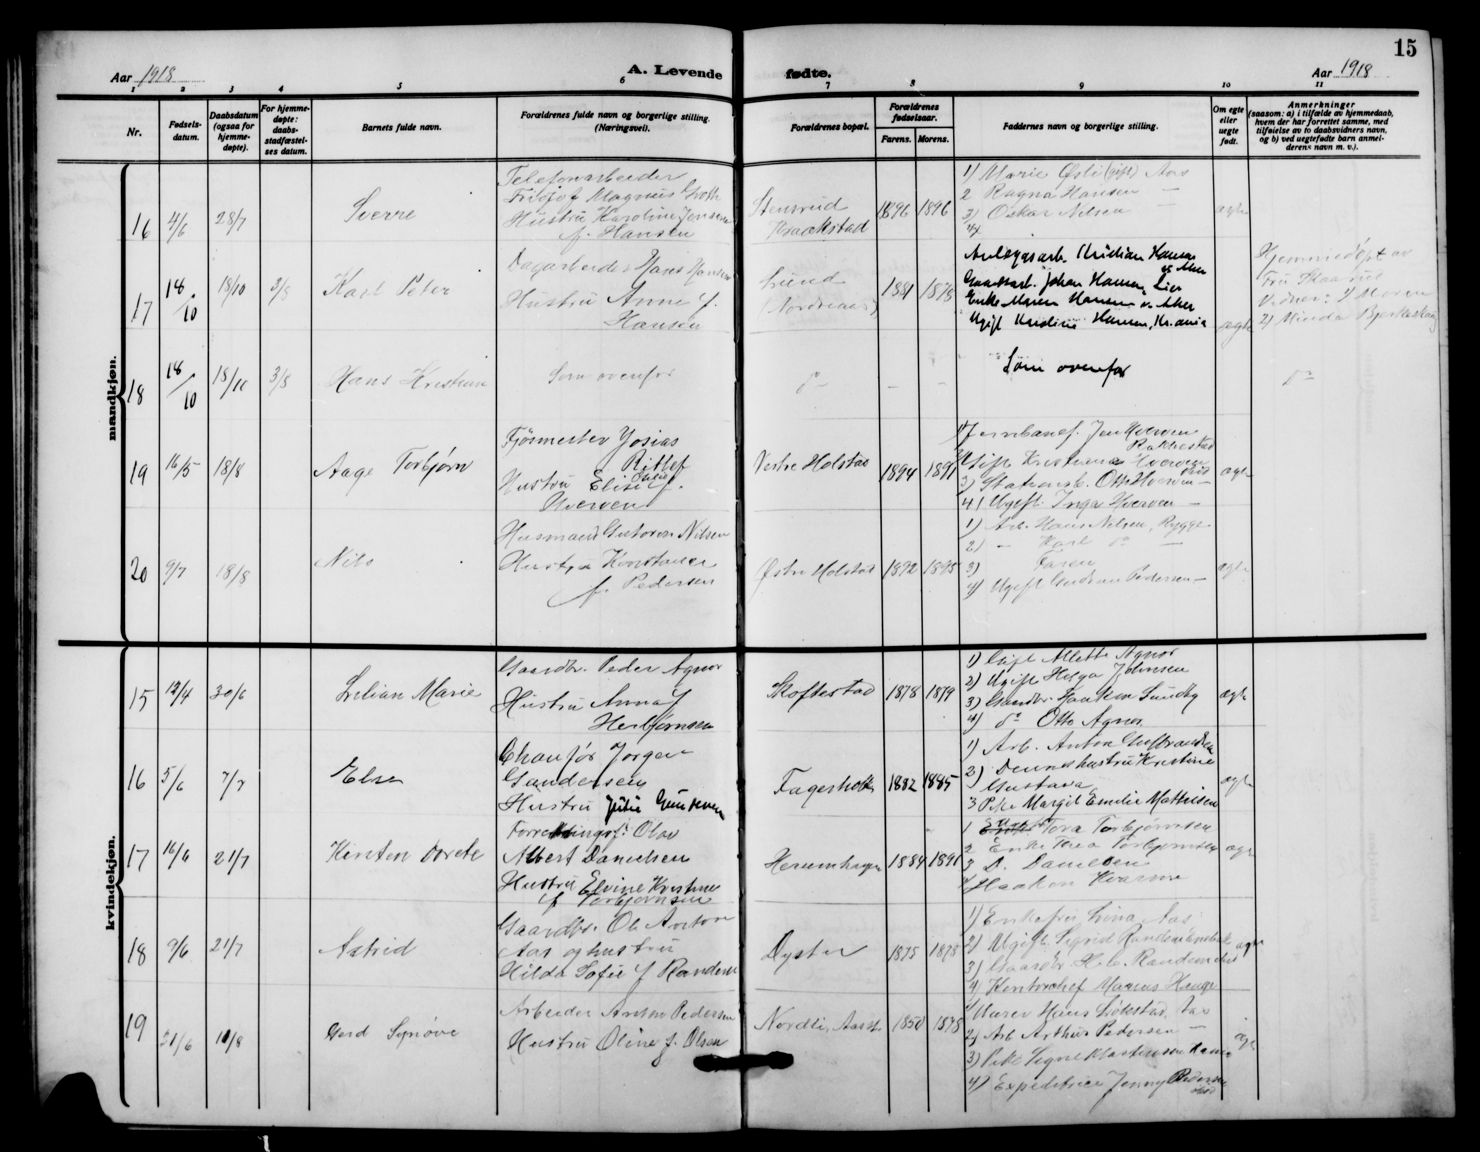 15
Aar 1918
A. Levende
fødte.
Aar 1918
1 2 3 4 5 6 7 8 9 10 11
Nr.
Fødsels-
datum.
Daabsdatum
(ogsaa for
hjemme-
døpte).
For hjemme-
døpte:
daabs-
stadfæstel-
ses datum.
Barnets fulde navn.
Forældrenes fulde navn og borgerlige stilling.
(Næringsvei).
Forældrenes bopæl.
Forældrenes
fødselsaar.
Farens. Morens.
Faddernes navn og borgerlige stilling.
Om egte
eller
uegte
født.
Anmerkninger
(saasom: a) i tilfælde av hjemmedaab,
hvem der har forrettet samme, med
tilføielse av to daabsvidners navn,
og b) ved uegtefødte barn anmel-
derens navn m. v.).
mandkjøn.
16 4/6 28/7
Sverre
Telefonarbeider
Fritjof Magnus
Hustru Karoline Jensine
f. Hansen
Stensrud
Kraakstad
1896 1896
1) Marie Østli (gift) Aas
2 Ragna Hansen —
3) Oskar Nilsen —
4)
egte
17 18/10 18/10 3/8
Karl Peter
Dagarbeider Hans Hansen
Hustru Anne f.
Hansen
Lund
(Nordraas)
1881 1875
Anlægsarb. Kristian Hansen
v. Aker
Gaardsarb. Johan Hansen, Lier
Enke Maren Hansen v. Aker
Ugift Kristine Hansen, Kr.ania
egte
Hjemmedøpt av
Fru Skaarud
Vidner: 1)
2) Minda
18 18/10 18/10 3/8
Hans Kristian
Som ovenfor
do
— —
Som ovenfor
do
19 16/5 18/8
Aage Torbjørn
Fjøsmester Josias
Ritlef
Hustru Elise f.
Hverven
Vestre Holstad
1894 1891
1) Jernbanef. Jen Hverven
2) Gift Kristiana Hverven
3) Stationsb. Otto Hverven —
4) Ugift Inga Hverven —
egte
20 9/7 18/8
Nils
Husmand Gustav Nilsen
Hustru Konstanse
f. Pedersen
Østre Holstad
1892 1895
1) Arb. Hans Nilsen, Rygge
2) — Karl do —
3) Faren
4) Ugift Gudrun Pedersen —
egte
kvindekjøn.
15 12/4 30/6
Lilian Marie
Gaardbr. Peder Agnor
Hustru Anna f
Herbjørnsen
Skoftestad
1878 1879
1) Gift Allette Agnor
2) Ugift Helga Johnsen
3) Gaardbr. Haakon Sundby
4) do Otto Agnor
egte
16 5/6 7/7
Else
Chauffør Jørgen
Gundersen
Hustru Julie Gundersen
Fagerholt
1882 1885
1) Arb. Anton Gulbrandsen
2) Dennes hustru Kristine
Gustava
3 Pike Margit Emelie Mathisen
egte
17 16/6 21/7
Kirsten Dorete
Forretningsf: Olav
Albert Danielsen
Hustru Elvine Kristine
f Torbjørnsen
Herumhagen
1884 1891
1 Tora Torbjørnsen
2 Enke Thea Torbjørnsen
3 D. Danielsen
4 Haakon Kvarme
egte
18 9/6 21/7
Astrid
Gaardbr. Ole Anton
Aas og hustru
Hilda Sofie f Randem
Dyster
1875 1878
1) Enkefru Lina Aas
2) Ugift Sigrid Randem
3) Gaardbr H. C. Randem
4) Kontorchef Marius Hauge
egte
19 21/6 11/8
Gerd Synøve
Arbeider Anton Pedersen
Hustru Oline f. Olsen
Nordli, Aas st.
1850 1878
1) Murer Hans Sikestad, Aas
2) Arb Arthur Pedersen —
3) Pike Signe Martinsen
4) Expeditrice Jenny Pedersen
egte